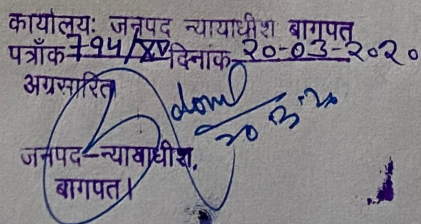 कार्यालयः जनपद न्यायाधीश बागपत
पत्राँक 794/XV दिनांक 20-03-2020
अग्रसारित
20.3.20
जनपद-न्यायाधीश,
बागपत।